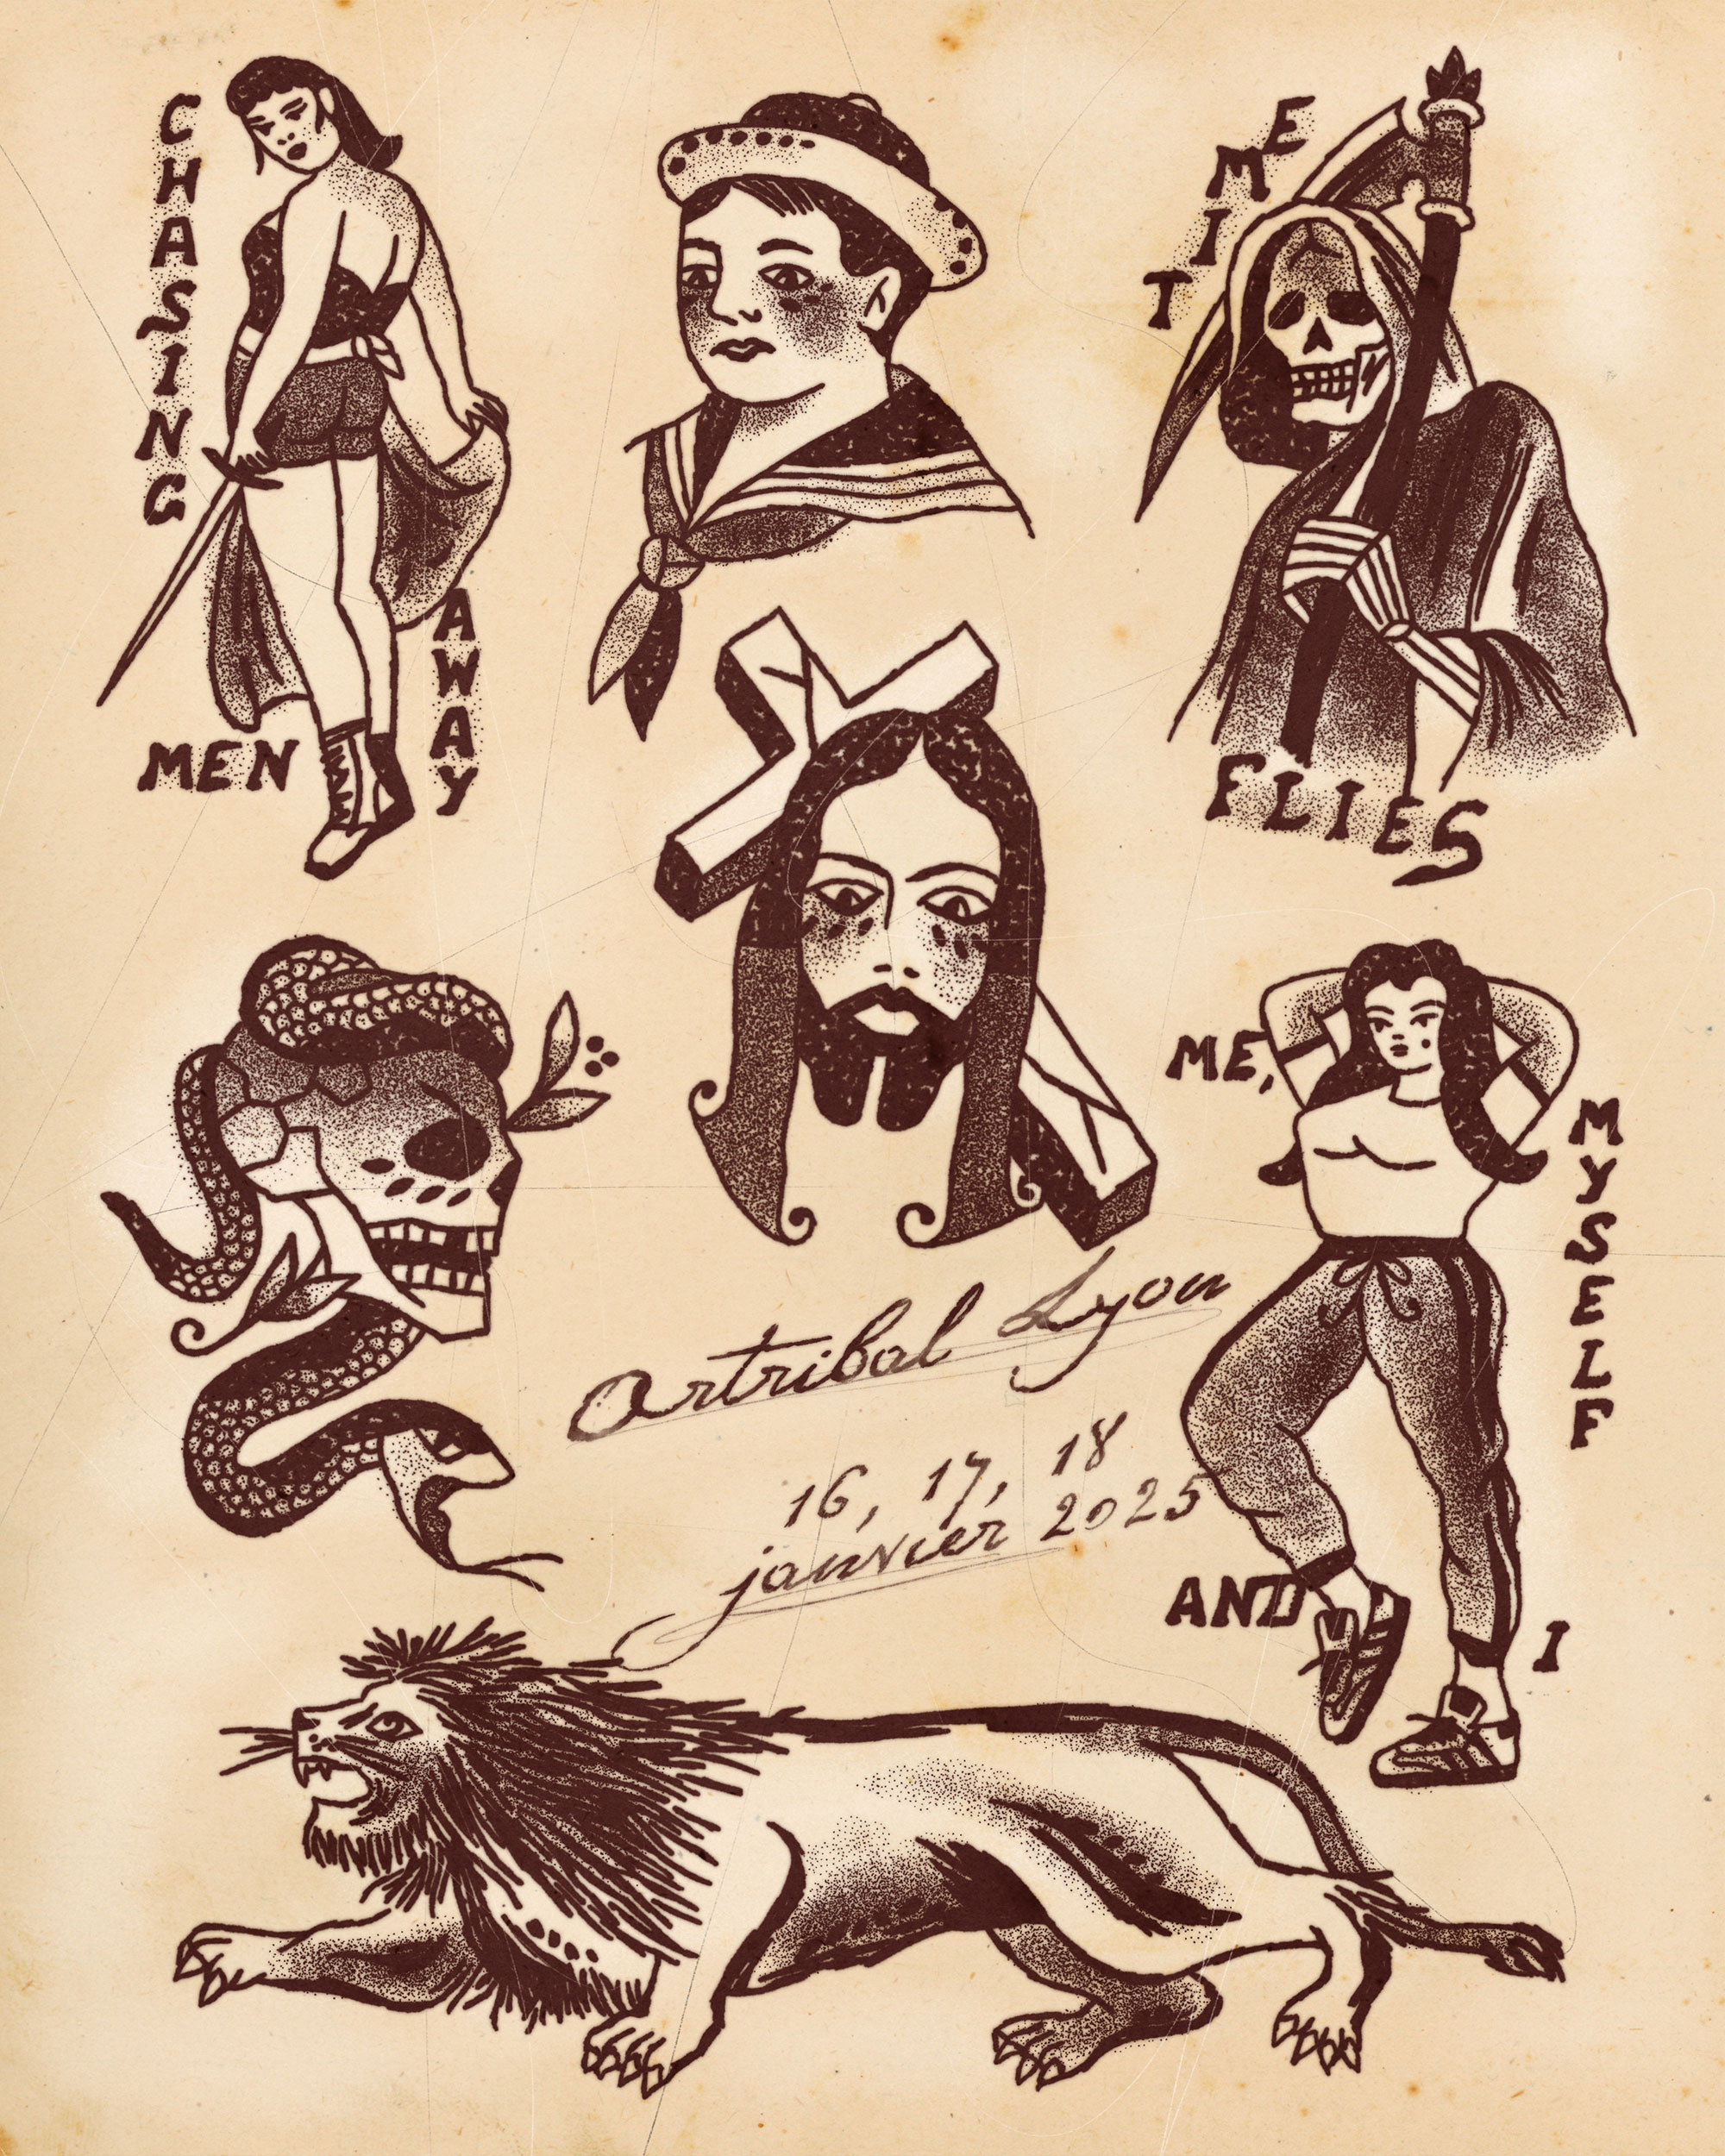 CHASING
MEN
AWAY
TIME
FLIES
artribal Lyon
16, 17, 18
janvier 2025
ME,
MYSELF
AND
I